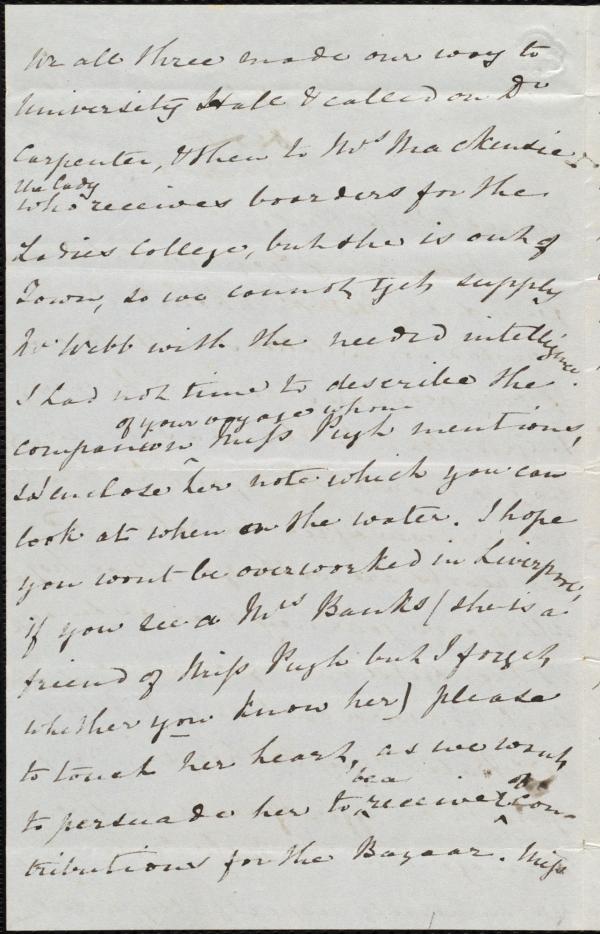 We all three made our way to
University Hall & called on Dr
Carpenter, & then to Mrs Mackenzie
the lady
who receives boarders for the
Ladies College, but she is out of
Town, so we cannot yet supply
Dr Webb with the needed intelligence.
I had not time to describe the
of your voyage whom
companion Miss Pugh mentions,
so enclose her note which you can
look at when on the water. I hope
you wont be overworked in Liverpool,
if you see a Mrs Banks (she is a
friend of Miss Pugh but I forget
whether you know her) please
to touch her heart, as we want
be a of
to persuade her to receiver con-
tributions for the Bazaar. Miss